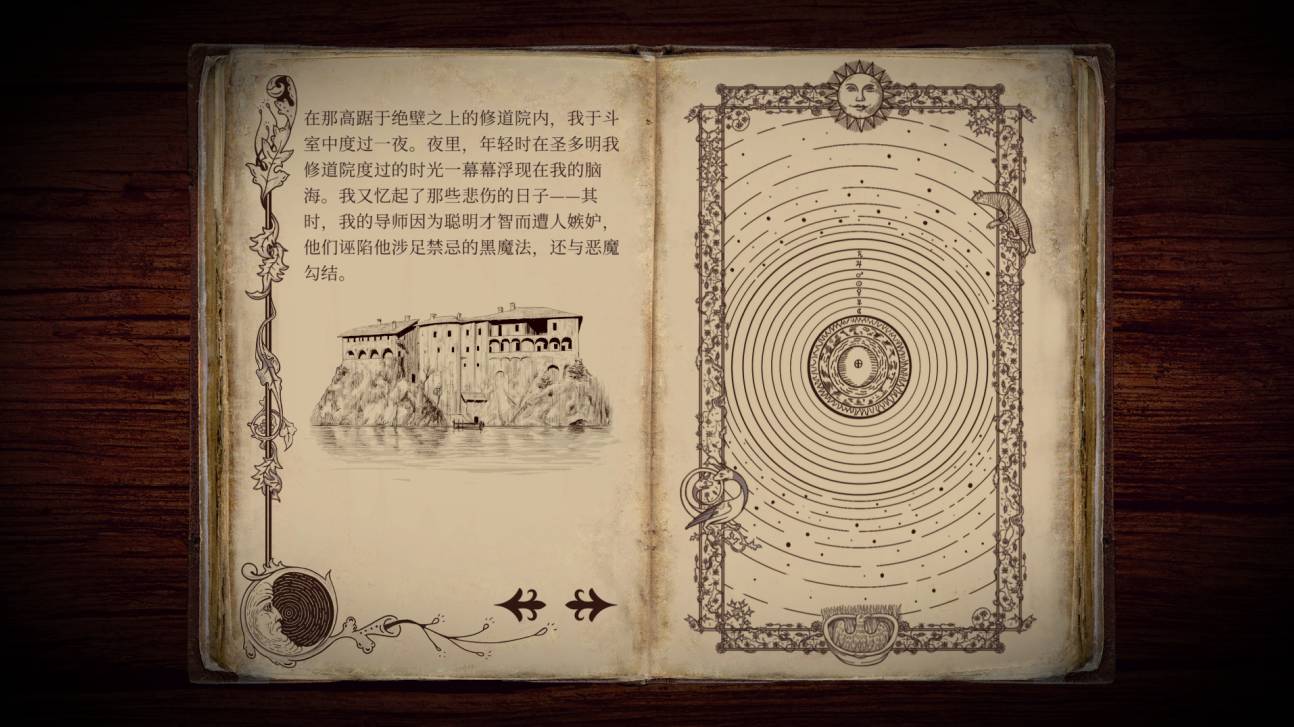 在那高踞于绝壁之上的修道院内，我于斗
室中度过一夜。夜里，年轻时在圣多明我
修道院度过的时光一幕幕浮现在我的脑
海。我又忆起了那些悲伤的日子——其
时，我的导师因为聪明才智而遭人嫉妒，
他们诬陷他涉足禁忌的黑魔法，还与恶魔
勾结。
♄
♃
♂
☉
♀
☿
☾